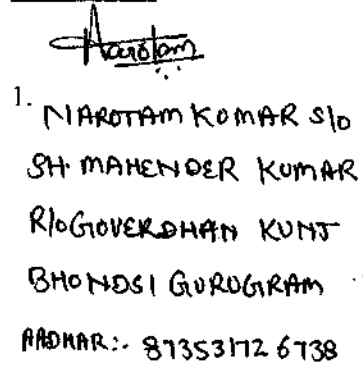 Narotam
1.
NAROTAM KUMAR S/O
SH. MAHENDER KUMAR
R/O GOVERDHAN KUNJ
BHONDSI GURUGRAM
AADHAR:- 8735 3172 6738